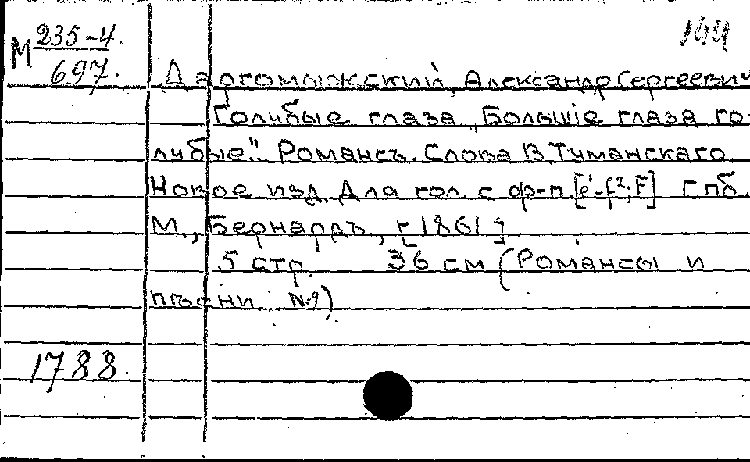 М 235-4.
697.
144
Даргомыжский, Александр Сергеевич
Голубые глаза „Большіе глаза го-
лубые". Романсъ. Слова В. Туманскаго
Новое изд. Для гол. с ф-п. [e¹-f²; F] Спб.
М., Бернардъ, [1861]
5 стр. 36 см (Романсы и
пѣсни №9)
1788.